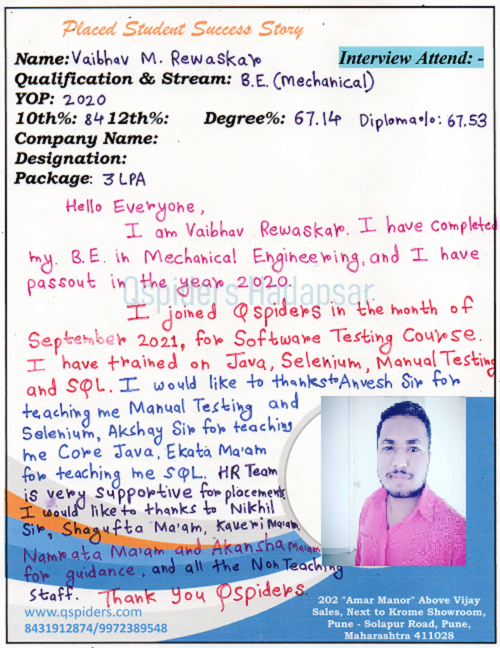 Placed Student Success Story
Name: Vaibhav M. Rewaskar Interview Attend: -
Qualification & Stream: B.E. (Mechanical)
YOP: 2020
10th%: 84 12th%: Degree%: 67.14 Diploma%: 67.53
Company Name:
Designation:
Package: 3 LPA
Hello Everyone,
I am Vaibhav Rewaskar. I have completed
my. B.E. in Mechanical Engineering, and I have
passout in the year 2020.
Qspiders Hadapsar
I joined Qspiders in the month of
September 2021, for Software Testing Course.
I have trained on Java, Selenium, Manual Testing
and SQL. I would like to thanks to Anvesh Sir for
teaching me Manual Testing and
Selenium, Akshay Sir for teaching
me Core Java, Ekata Ma'am
for teaching me SQL. HR Team
is very supportive for placements
I would like to thanks to Nikhil
Sir, Shagufta Ma'am, Kaveri Ma'am,
Namrata Ma'am and Akansha Ma'am
for guidance, and all the Non Teaching
Staff. Thank You Qspiders.
www.qspiders.com
8431912874/9972389548
202 "Amar Manor" Above Vijay
Sales, Next to Krome Showroom,
Pune - Solapur Road, Pune,
Maharashtra 411028